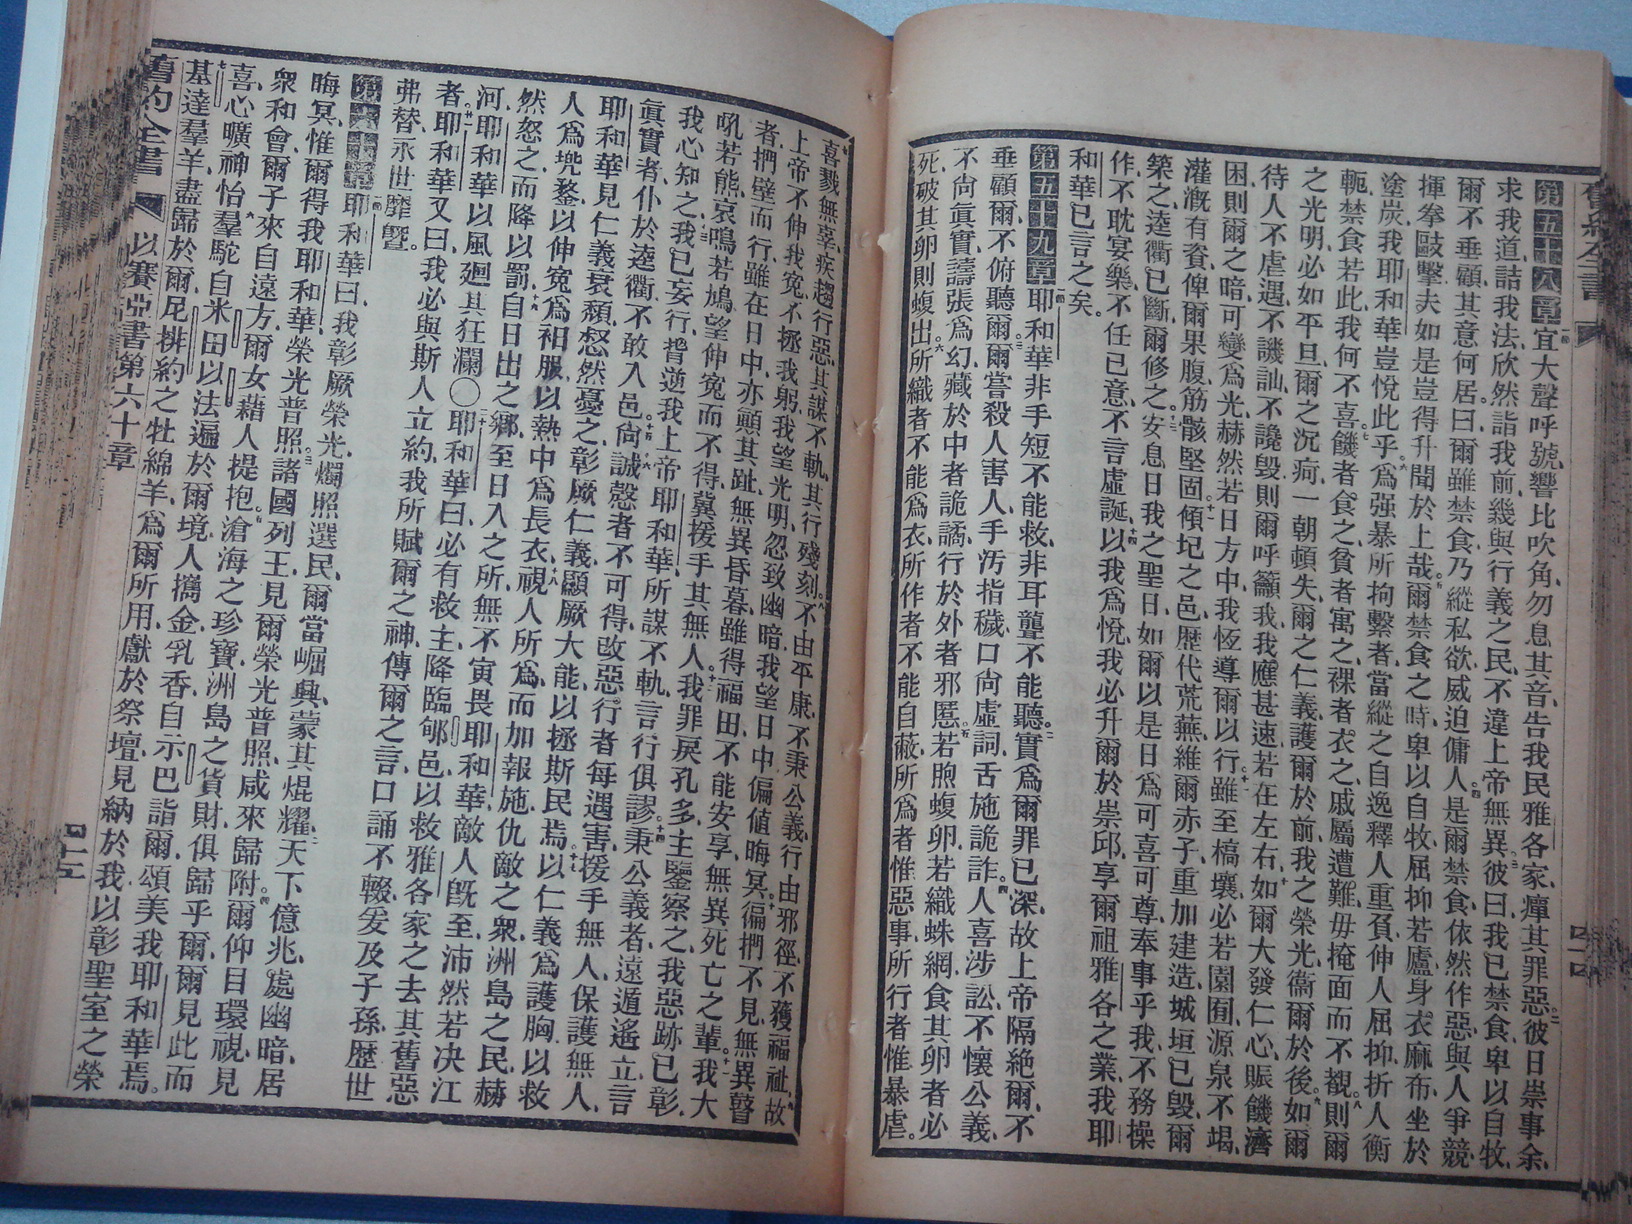 舊約全書
四十四
第五十八章宜大聲呼號響比吹角勿息其音告我民雅各家瘅其罪惡彼日崇事余
求我道詰我法欣然詣我前幾與行義之民不違上帝無異彼曰我已禁食卑以自牧
爾不垂顧其意何居曰爾雖禁食乃縱私欲威迫傭人是爾禁食依然作惡與人爭競
揮拳毆擊夫如是豈得升聞於上哉爾禁食之時卑以自牧屈抑若蘆身衣麻布坐於
塗炭我耶和華豈悅此乎爲强暴所拘繫者當縱之自逸釋人重負伸人屈抑折人衡
軛禁食若此我何不喜饑者食之貧者寓之裸者衣之戚屬遭難毋掩面而不觀則爾
之光明必如平旦爾之沉疴一朝頓失爾之仁義護爾於前我之榮光衞爾於後如爾
待人不虐遇不譏訕不讒毀則爾呼籲我我應甚速若在左右如爾大發仁心賑饑濟
困則爾之暗可變爲光赫然若日方中我恆導爾以行雖至槁壤必若園囿源泉不竭
灌漑有資俾爾果腹筋骸堅固傾圮之邑歷代荒蕪維爾赤子重加建造城垣已毀爾
築之逵衢已斷爾修之安息日我之聖日如爾以是日爲可喜可尊奉事乎我不務操
作不耽宴樂不任已意不言虛誕以我爲悅我必升爾於崇邱享爾祖雅各之業我耶
和華已言之矣
第五十九章耶和華非手短不能救非耳聾不能聽實爲爾罪已深故上帝隔絶爾不
垂顧爾不俯聽爾爾嘗殺人害人手汚指穢口尙虛詞舌施詭詐人喜涉訟不懷公義
不尙眞實譸張爲幻藏於中者詭譎行於外者邪慝若煦蝮卵若織蛛網食其卵者必
死破其卵則蝮出所織者不能爲衣所作者不能自蔽所爲者惟惡事所行者惟暴虐
喜戮無辜疾趨行惡其謀不軌其行殘刻不由平康不秉公義行由邪徑不獲福祉故
上帝不伸我寃不拯我躬我望光明忽致幽暗我望日中偏值晦冥徧捫不見無異瞽
者捫壁而行雖在日中亦顚其趾無異昏暮雖得福田不能安享無異死亡之輩我大
吼若熊哀鳴若鳩望伸寃而不得冀援手其無人我罪戾孔多主鑒察之我惡跡已彰
我心知之我已妄行，背逆我上帝耶和華所謀不軌言行俱謬秉公義者遠遁遙立言
眞實者仆於逵衢不敢入邑尙誠慤者不可得改惡行者每遇害援手無人保護無人
耶和華見仁義衰頹怒然憂之彰厥仁義顯厥大能以拯斯民焉以仁義爲護胸以救
人爲兜鍪以伸寃爲衵服以熱中爲長衣視人所爲而加報施仇敵之衆洲島之民赫
然怒之而降以罰自日出之鄉至日入之所無不寅畏耶和華敵人旣至沛然若决江
河耶和華以風廻其狂瀾〇耶和華曰必有救主降臨郇邑以救雅各家之去其舊惡
者耶和華又曰我必與斯人立約我所賦爾之神傳爾之言口誦不輟爰及子孫歷世
弗替永世靡曁
第六十章耶和華曰我彰厥榮光燭照選民爾當崛興蒙其焜耀天下億兆處幽暗居
晦冥惟爾得我耶和華榮光普照諸國列王見爾榮光普照咸來歸附爾仰目環視見
衆和會爾子來自遠方爾女藉人提抱滄海之珍寶洲島之貨財俱歸乎爾爾見此而
喜心曠神怡羣駝自米田以法遍於爾境人攜金乳香自示巴詣爾頌美我耶和華焉
基達羣羊盡歸於爾尼排約之牡綿羊爲爾所用獻於祭壇見納於我以彰聖室之榮
舊約全書 以賽亞書第六十章 四十五